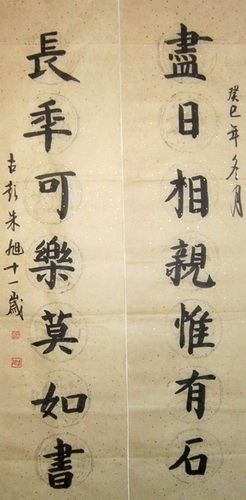 癸巳年冬月
盡日相親惟有石
長年可樂莫如書
古彭朱旭十一歲